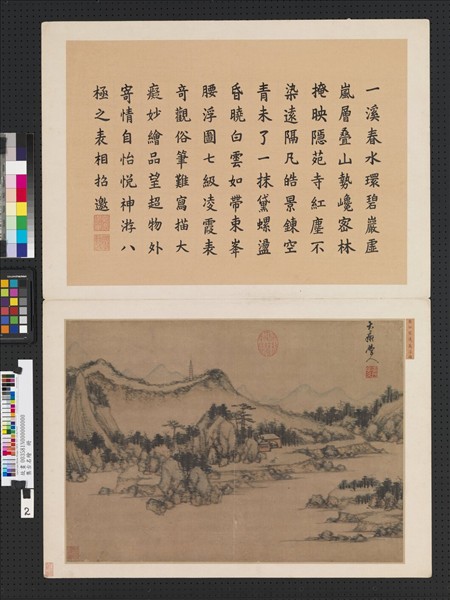 一溪春水環碧巖虛
嵐層疊山勢巉密林
掩映隱苑寺紅塵不
染遠隔凡皓景鍊空
青未了一抹黛螺盪
昏曉白雲如帶束峯
腰浮圖七級凌霞表
奇觀俗筆難寫描大
癡妙繪品望超物外
寄情自怡悅神游八
極之表相招邀
大癡學人
2